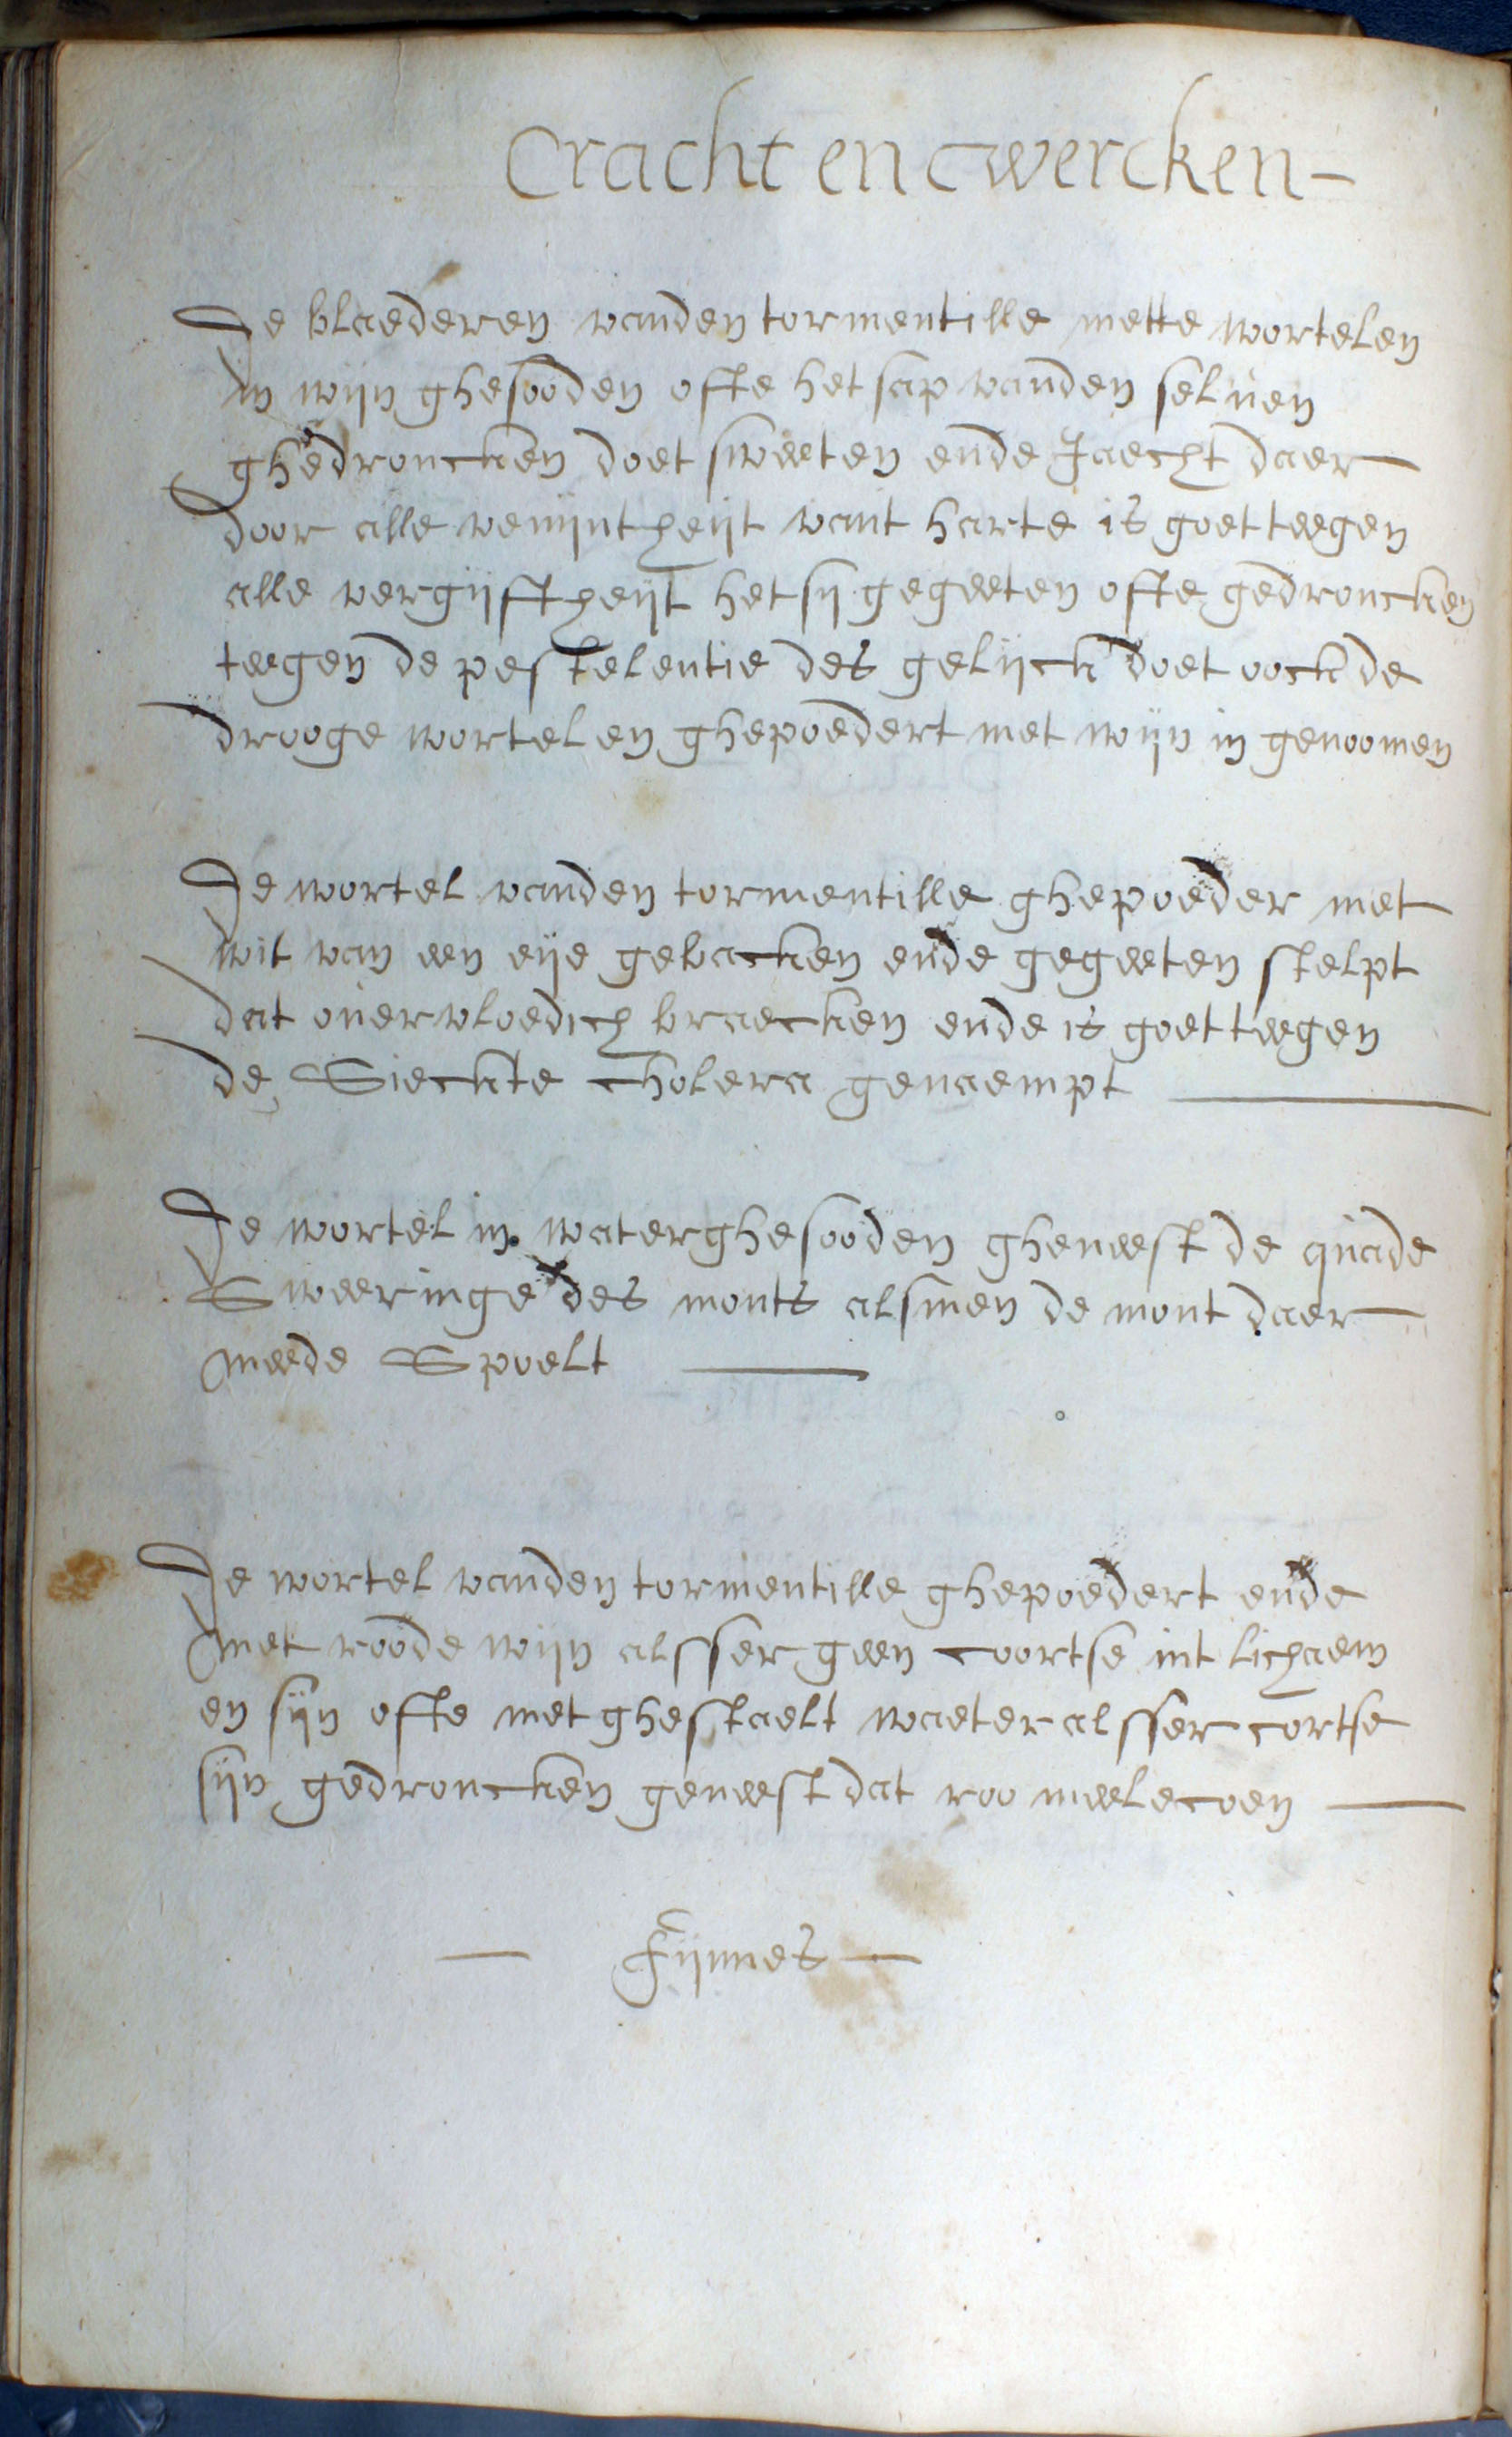 Cracht en wercken
De blaederen vanden tormentille mette wortelen
in wijn ghesooden ofte het sap vanden selven
ghedroncken doet sweeten ende Jaecht daer
door alle venijntheijt vant harte is goet teegen
alle vergijftheijt het sij gegeeten ofte gedroncken
teegen de pestelentie des gelijck doet oock de
drooge wortelen ghepoedert met wijn in genoomen
De wortel vanden tormentille ghepoeder met
wit van een eije gebacken ende gegeeten stelpt
dat overvloedich braecken ende is goet teegen
de Sieckte cholera genaempt
De wortel in water ghesooden gheneest de quade
Sweeringe des monts alsmen de mont daer
meede Spoelt
De wortel vanden tormentille ghepoedert ende
met roode wijn alsser geen coortse int lichaem
en sijn ofte met ghestaelt waeter alsser cortse
sijn gedroncken geneest dat roo meelecoen
Fijnnes